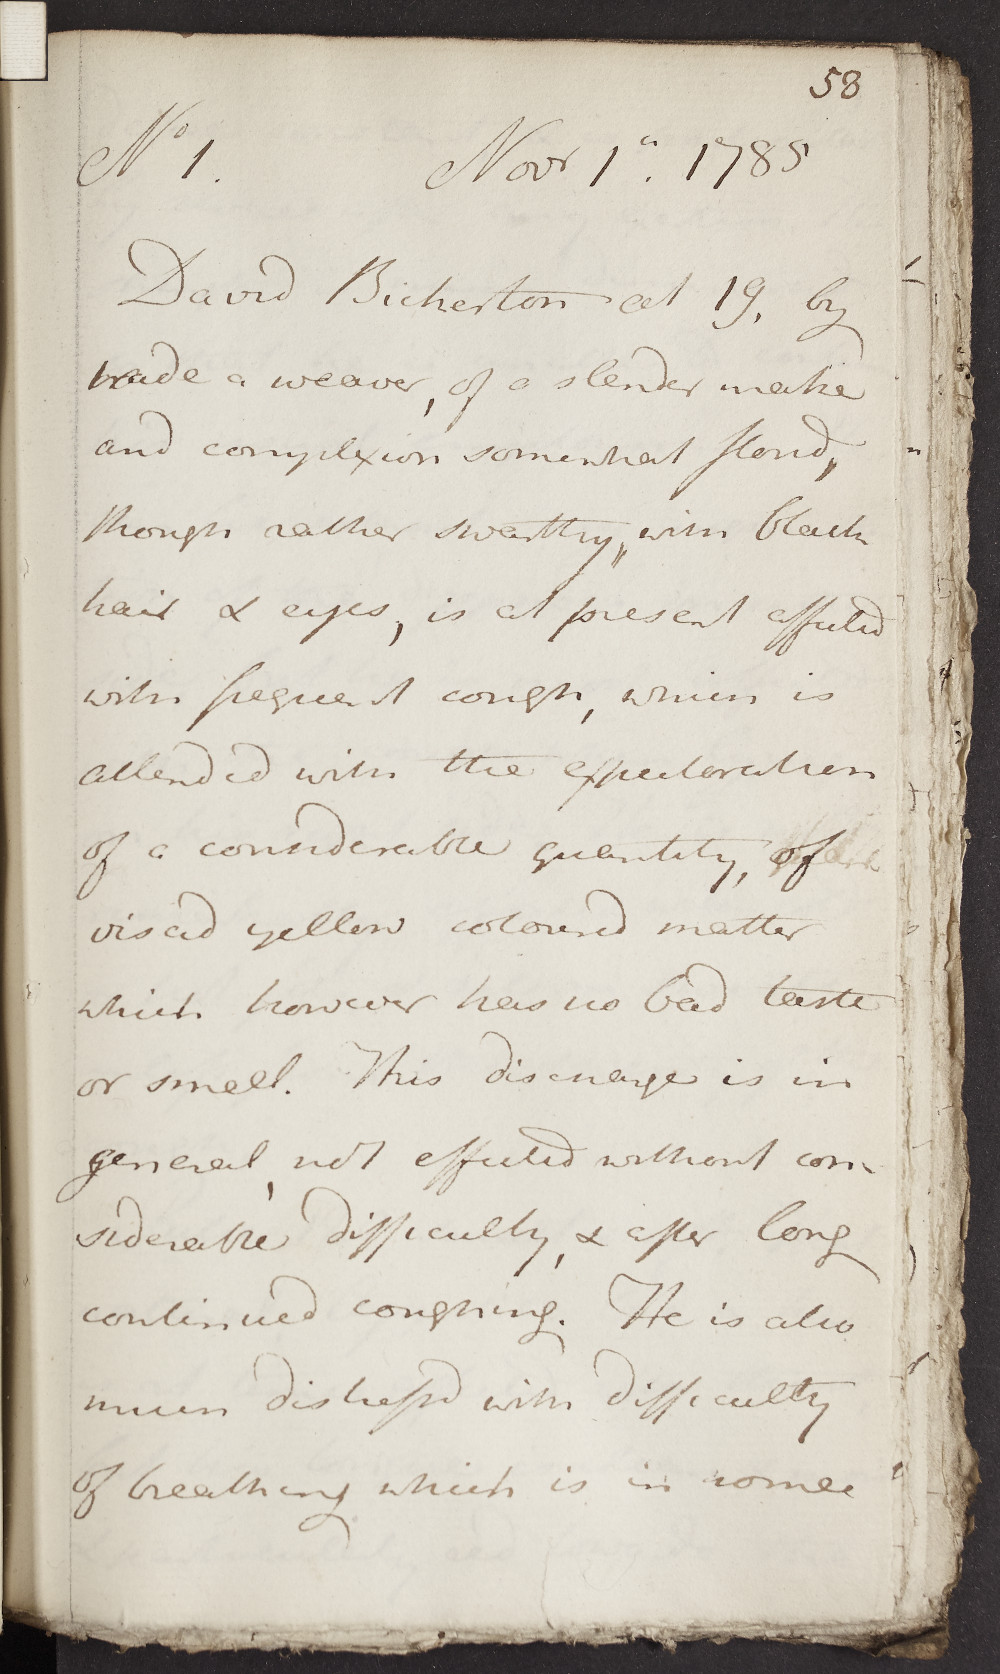 58
No 1. Novr 1st. 1785
David Bicherton aet 19, by
trade a weaver, of a slender make
and complexion somewhat florid,
though rather swarthy, with black
hair & eyes, is at present affected
with frequent cough, which is
attended with the expectoration
of a considerable quantity, of
viscid yellow coloured matter
which however has no bad taste
or smell. This discharge is in
general, not effected without con-
siderable difficulty, & after long
continued coughing. He is also
much distressd with difficulty
of breathing which is in some